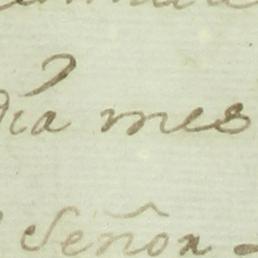 dia mes
Señor